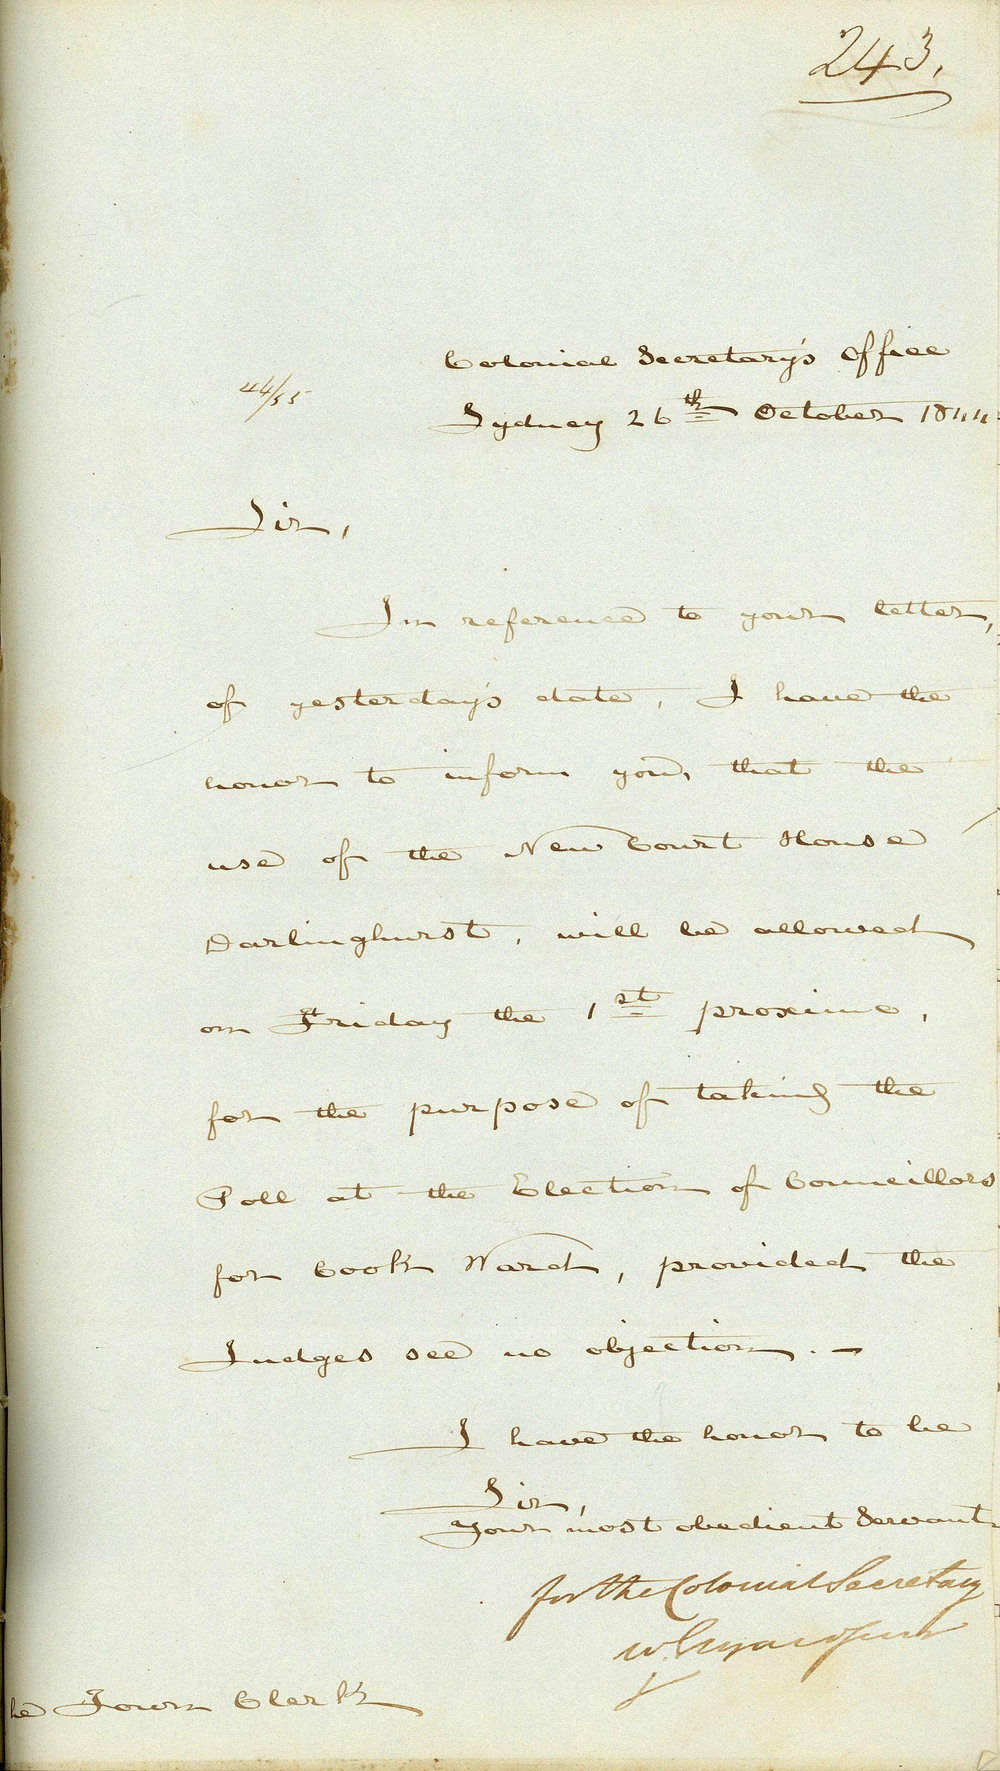 243.
Colonial Secretary's Office
44/55
Sydney 26th October 1844
Sir,
In reference to your letter,
of yesterday's date, I have the
honor to inform you, that the
use of the New Court House
Darlinghurst, will be allowed
on Friday the 1st proximo,
for the purpose of taking the
Poll at the Election of Councillors
for Cook Ward, provided the
Judges see no objection. —
I have the honor to be
Sir,
Your most obedient Servant
for the Colonial Secretary
W.
he Town Clerk